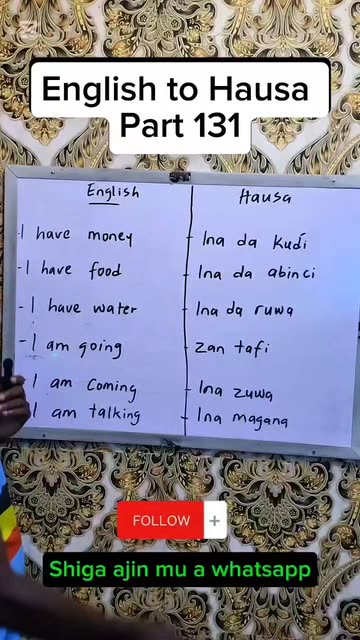 English to Hausa
Part 131
English Hausa
- I have money - Ina da kudi
- I have food - Ina da abinci
- I have water - Ina da ruwa
- I am going - Zan tafi
I am coming - Ina zuwa
I am talking - Ina magana
FOLLOW +
Shiga ajin mu a whatsapp